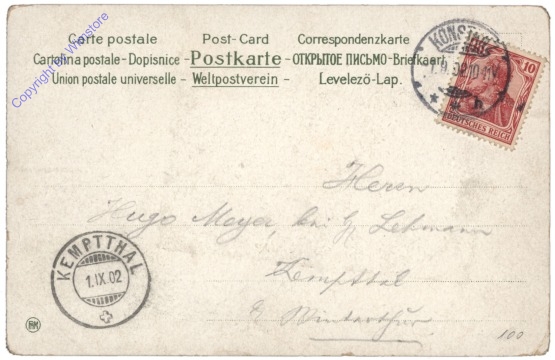 Carte postale Post-Card Correspondenzkarte
Cartolina postale - Dopisnice - Postkarte - ОТКРЫТОЕ ПИСЬМО - Briefkaart
Union postale universelle - Weltpostverein - Levelező-Lap.
Copyright by Wienstore
KONSTANZ
10
DEUTSCHES REICH
Herrn
Hugo Meyer, bei H. Lehmann
Kempttal
b/ Winterthur
KEMPTTHAL
1.IX.02
BK
100